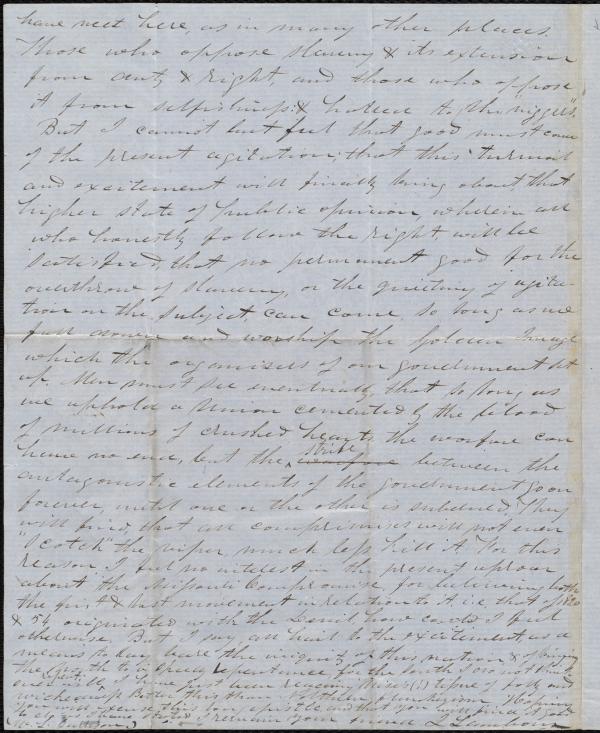 have met here, as in many other places.
Those who oppose slavery & its extension
from duty & right, and those who oppose
it from selfishness & hatred to "the niggers".
But I cannot but feel that good must come
of the present agitation; that this turmoil
and excitement will finally bring about that
higher state of public opinion, wherein all
who honestly follow the right, will be
satisfied, that no permanent good for the
overthrow of slavery, or the quieting of agita-
tion on the subject, can come, so long as we
fall down and worship the Golden Image
which the organisers of our government set
up. Men must see eventually, that so long as
we uphold a Union cemented by the blood
of millions of crushed hearts the warfare can
have no end, but the strife between the
antagonistic elements of the government go on
forever, until one or the other is subdued. They
will find, that all compromises will not even
"scotch" the viper, much less kill it. For this
reason I feel no interest in the present uproar
about the Missouri Compromise, for believing both
the first & last movement in relation to it. i.e. that of 1820
& 54, originated with the Devil, how could I feel
otherwise. But I say all hail to the excitement as a
means to lay bare the iniquity of this nation & of bringing
the North to a speedy repentance for the
I have just been reading
wickedness
You will excuse this long epistle and
I remain your friend